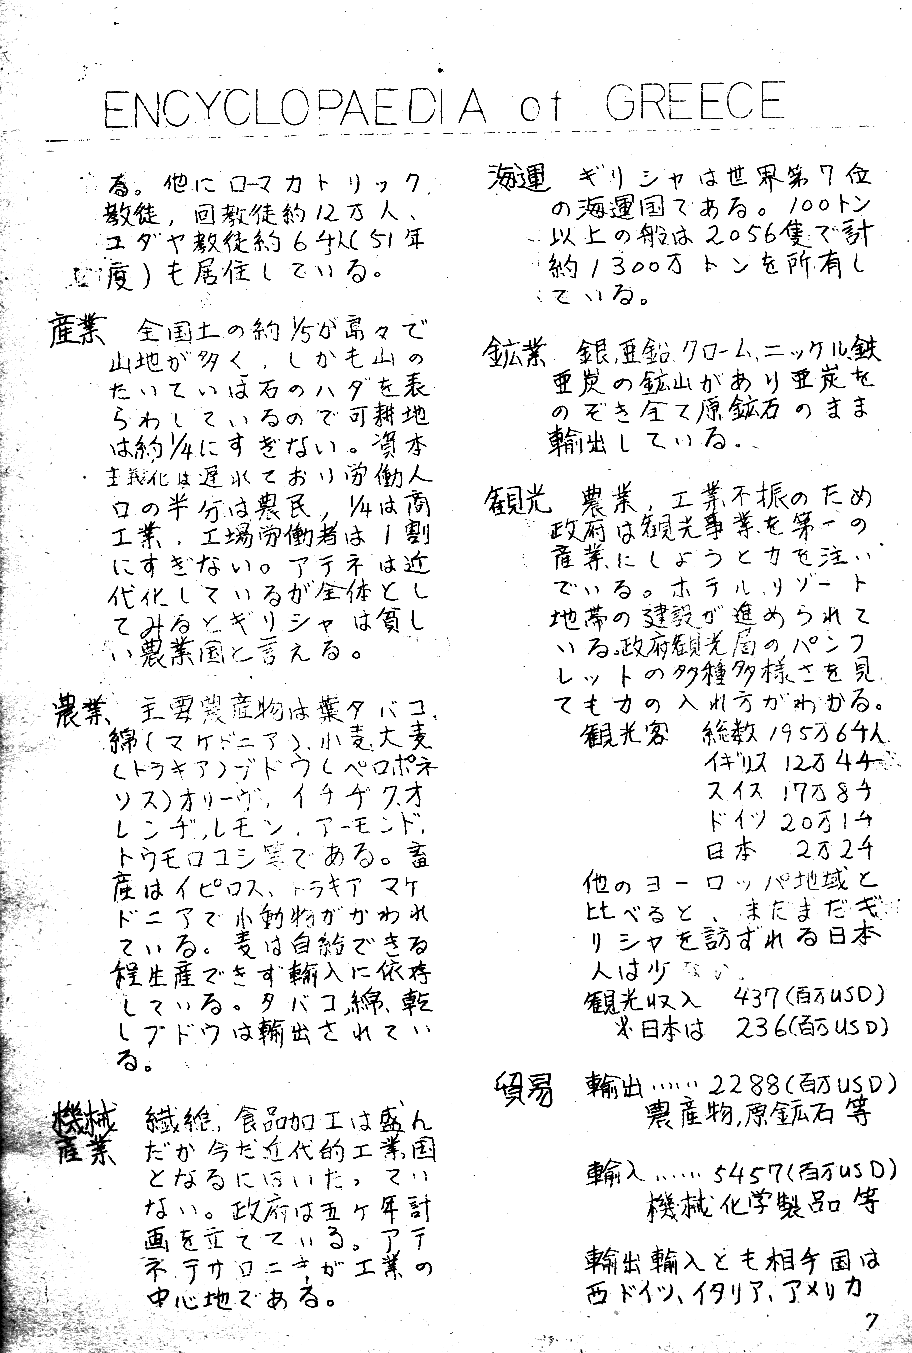 ENCYCLOPAEDIA of GREECE
る。他にローマカトリック
教徒，回教徒約12万人、
ユダヤ教徒約6千人(51年
度)も居住している。
産業 全国土の約1/5が島々で
山地が多く，しかも山の
たいていは石のハダを表
らわしているので可耕地
は約1/4にすぎない。資本
主義化は遅れており労働人
口の半分は農民，1/4は商
工業，工場労働者は1割
にすぎない。アテネは近
代化しているが全体とし
てみるとギリシャは貧し
い農業国と言える。
農業 主要農産物は葉タバコ，
綿(マケドニア)、小麦、大麦
(トラキア)ブドウ(ペロポネ
ソス)オリーヴ，イチヂク、オ
レンヂ，レモン，アーモンド，
トウモロコシ等である。畜
産はイピロス、トラキア マケ
ドニアで小動物がかわれ
ている。麦は自給できる
程生産できず輸入に依存
している。タバコ，綿、乾
しブドウは輸出されてい
る。
機械
産業 繊維，食品加工は盛ん
だが今だ近代的工業国
となるにはいたってい
ない。政府は五ヶ年計
画を立てている。アテ
ネ テサロニキが工業の
中心地である。
海運 ギリシャは世界第7位
の海運国である。100トン
以上の船は2056隻で計
約1300万トンを所有し
ている。
鉱業 銀，亜鉛，クローム，ニッケル，鉄
亜炭の鉱山があり亜炭を
のぞき全て原鉱石のまま
輸出している．
観光 農業，工業不振のため
政府は観光事業を第一の
産業にしようと力を注い
でいる。ホテル，リゾート
地帯の建設が進められて
いる。政府観光局のパンフ
レットの多種多様さを見
ても力の入れ方がわかる。
観光客 総数 195万6千人
イギリス 12万4千
スイス 17万8千
ドイツ 20万1千
日本 2万2千
他のヨーロッパ地域と
比べると、まだまだギ
リシャを訪ずれる日本
人は少ない。
観光収入 437(百万USD)
※日本は 236(百万USD)
貿易 輸出…… 2288(百万USD)
農産物，原鉱石等
輸入…… 5457(百万USD)
機械 化学製品等
輸出輸入とも相手国は
西ドイツ、イタリア、アメリカ
7